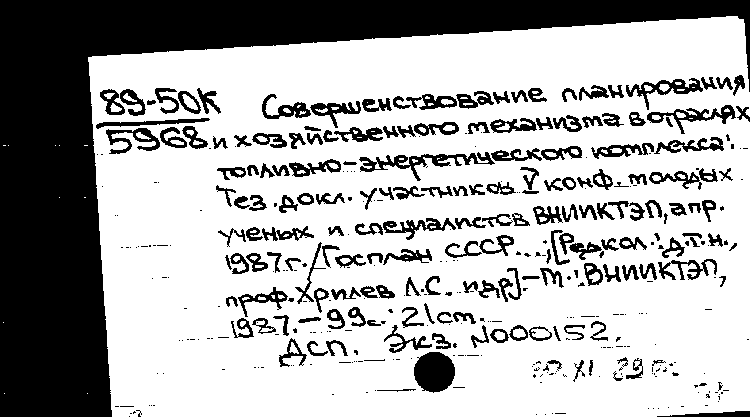 89-50К
5968
Совершенствование планирования
и хозяйственного механизма в отраслях
топливно-энергетического комплекса:
Тез. докл. участников V конф. молодых
ученых и специалистов ВНИИКТЭП, апр.
1987г. / Госплан СССР...; [Редкол.: д.т.н.,
проф. Хрилев Л.С. и др]. - М.: ВНИИКТЭП,
1987. - 99с.; 21cm.
ДСП. Экз. N000152.
XI 89